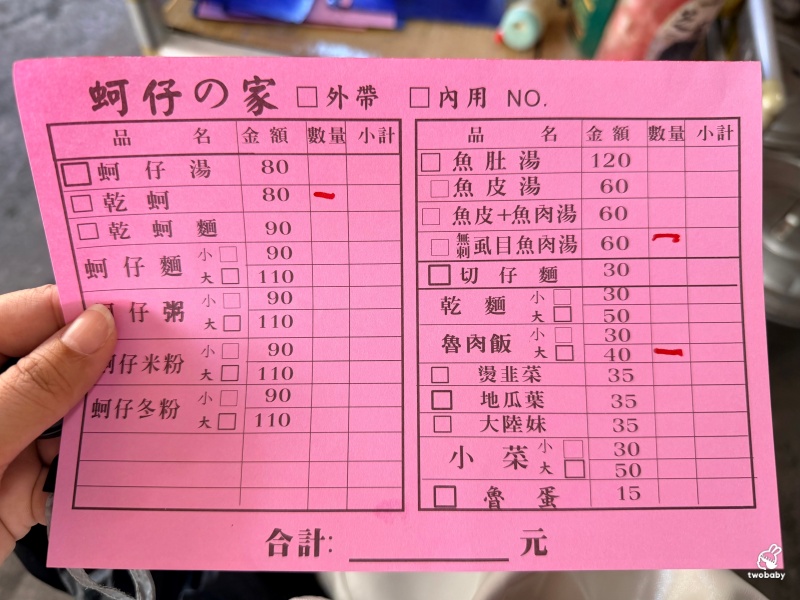 蚵仔の家 □外帶 □內用 NO.
品 名 金額 數量 小計
□蚵仔湯 80
□乾蚵 80 一
□乾蚵麵 90
蚵仔麵 小□ 90
大□ 110
仔粥 小□ 90
大□ 110
蚵仔米粉 小□ 90
大□ 110
蚵仔冬粉 小□ 90
大□ 110
品 名 金額 數量 小計
□魚肚湯 120
□魚皮湯 60
□魚皮+魚肉湯 60
□無刺虱目魚肉湯 60 一
□切仔麵 30
乾麵 小□ 30
大□ 50
魯肉飯 小□ 30
大□ 40 一
□燙韭菜 35
□地瓜葉 35
□大陸妹 35
小菜 小□ 30
大□ 50
□魯蛋 15
合計: 元
twobaby